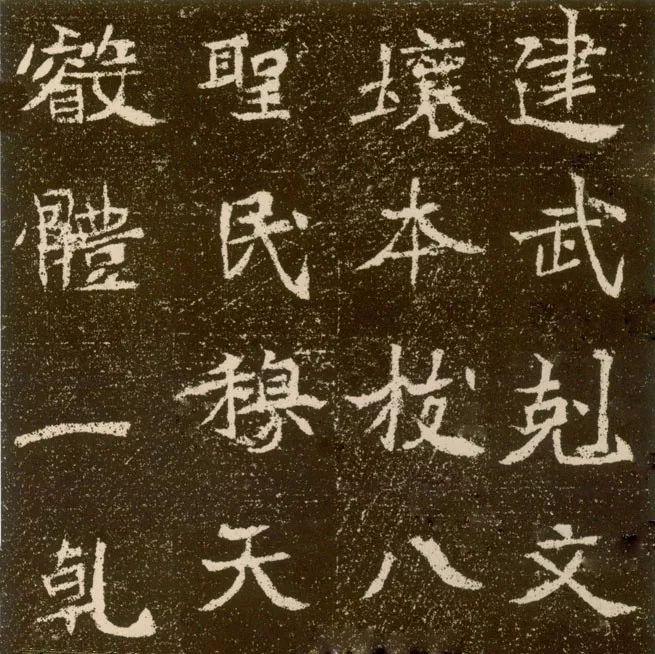 建武剋文
壞本枝八
聖民穆天
叡體一乹